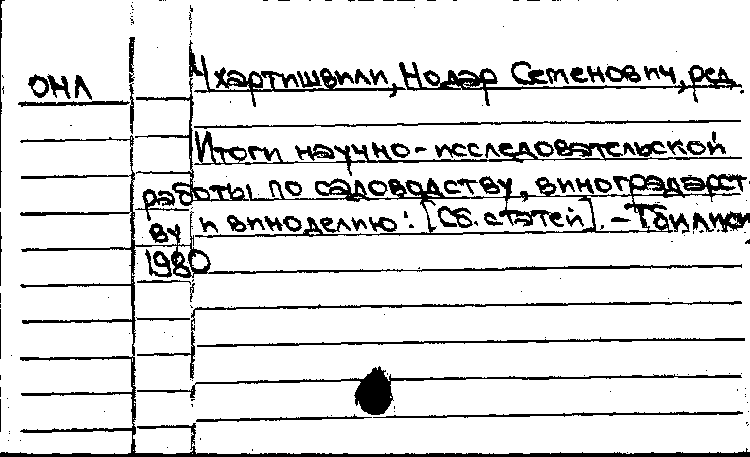 ОНЛ
Чхартишвили, Нодар Семенович, ред.
Итоги научно-исследовательской
работы по садоводству, виноградарст-
ву и виноделию: [Сб. статей]. - Тбилиси,
1980